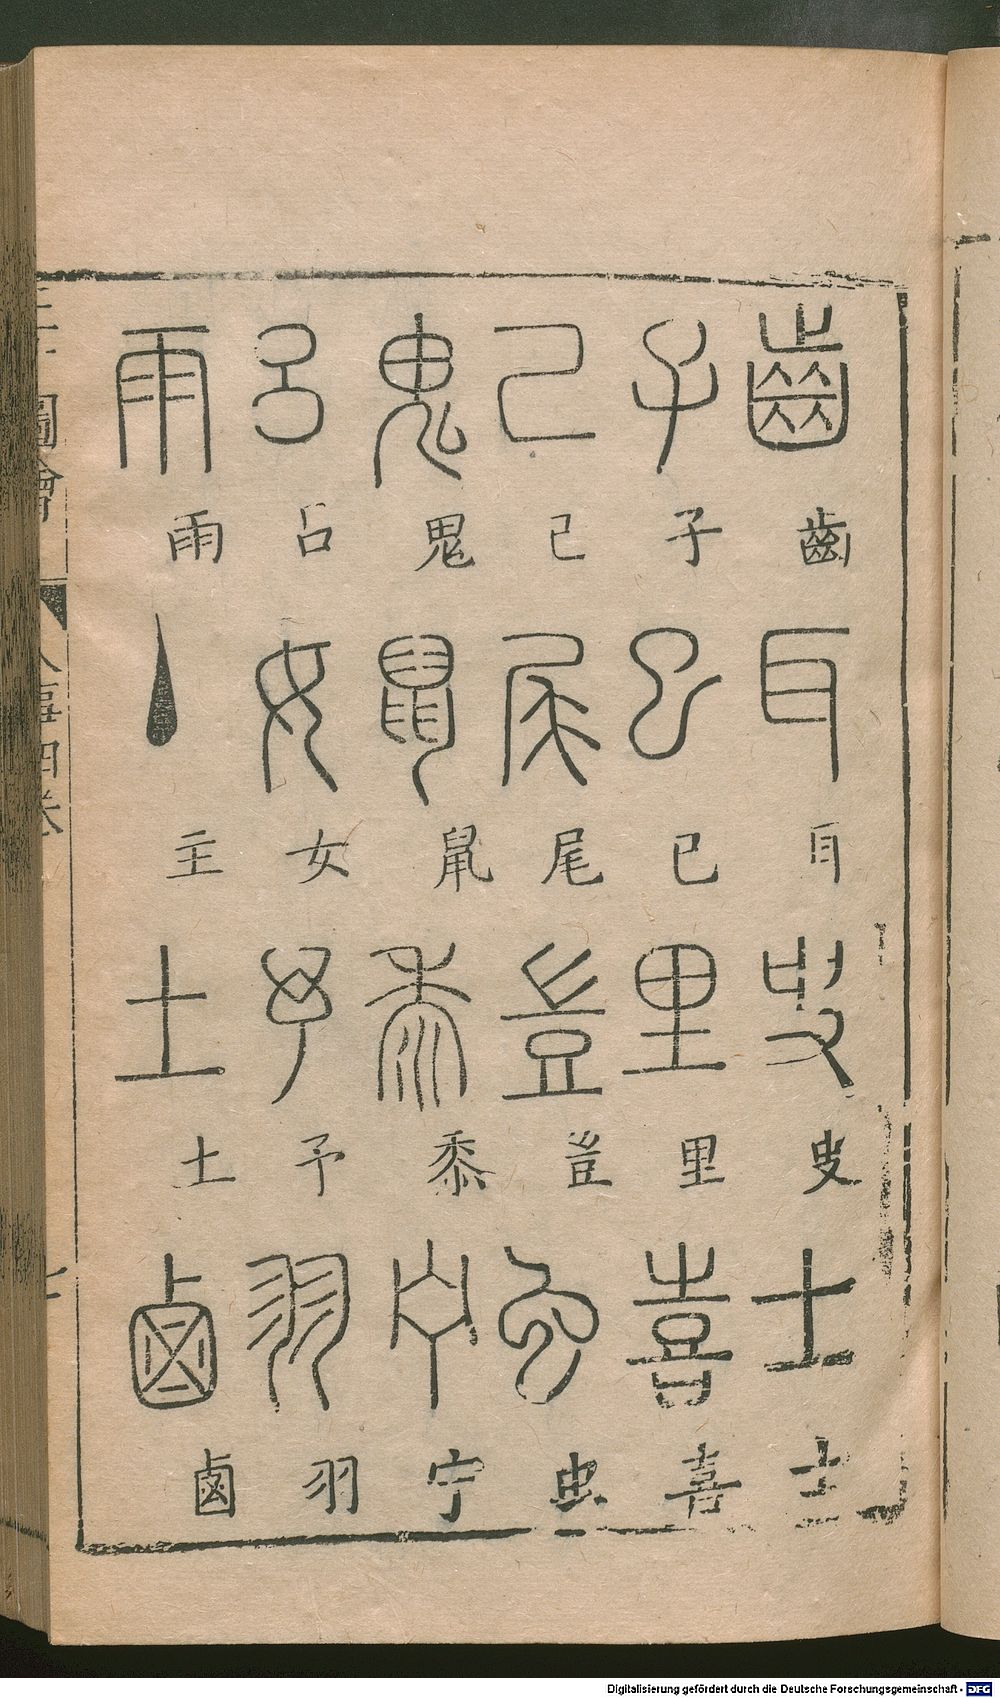 齒 耳 士
子 巳 里 喜
己 尾 豈 虫
鬼 鼠 黍 宁
女 予 羽
雨 主 土 鹵
三才圖會 人事四卷
Digitalisierung gefördert durch die Deutsche Forschungsgemeinschaft - DFG